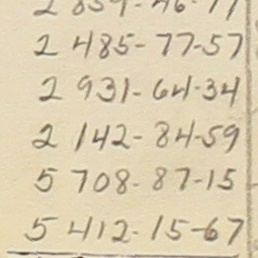 2 485-77-57
2 931-64-34
2 142-84-59
5 708-87-15
5 412-15-67